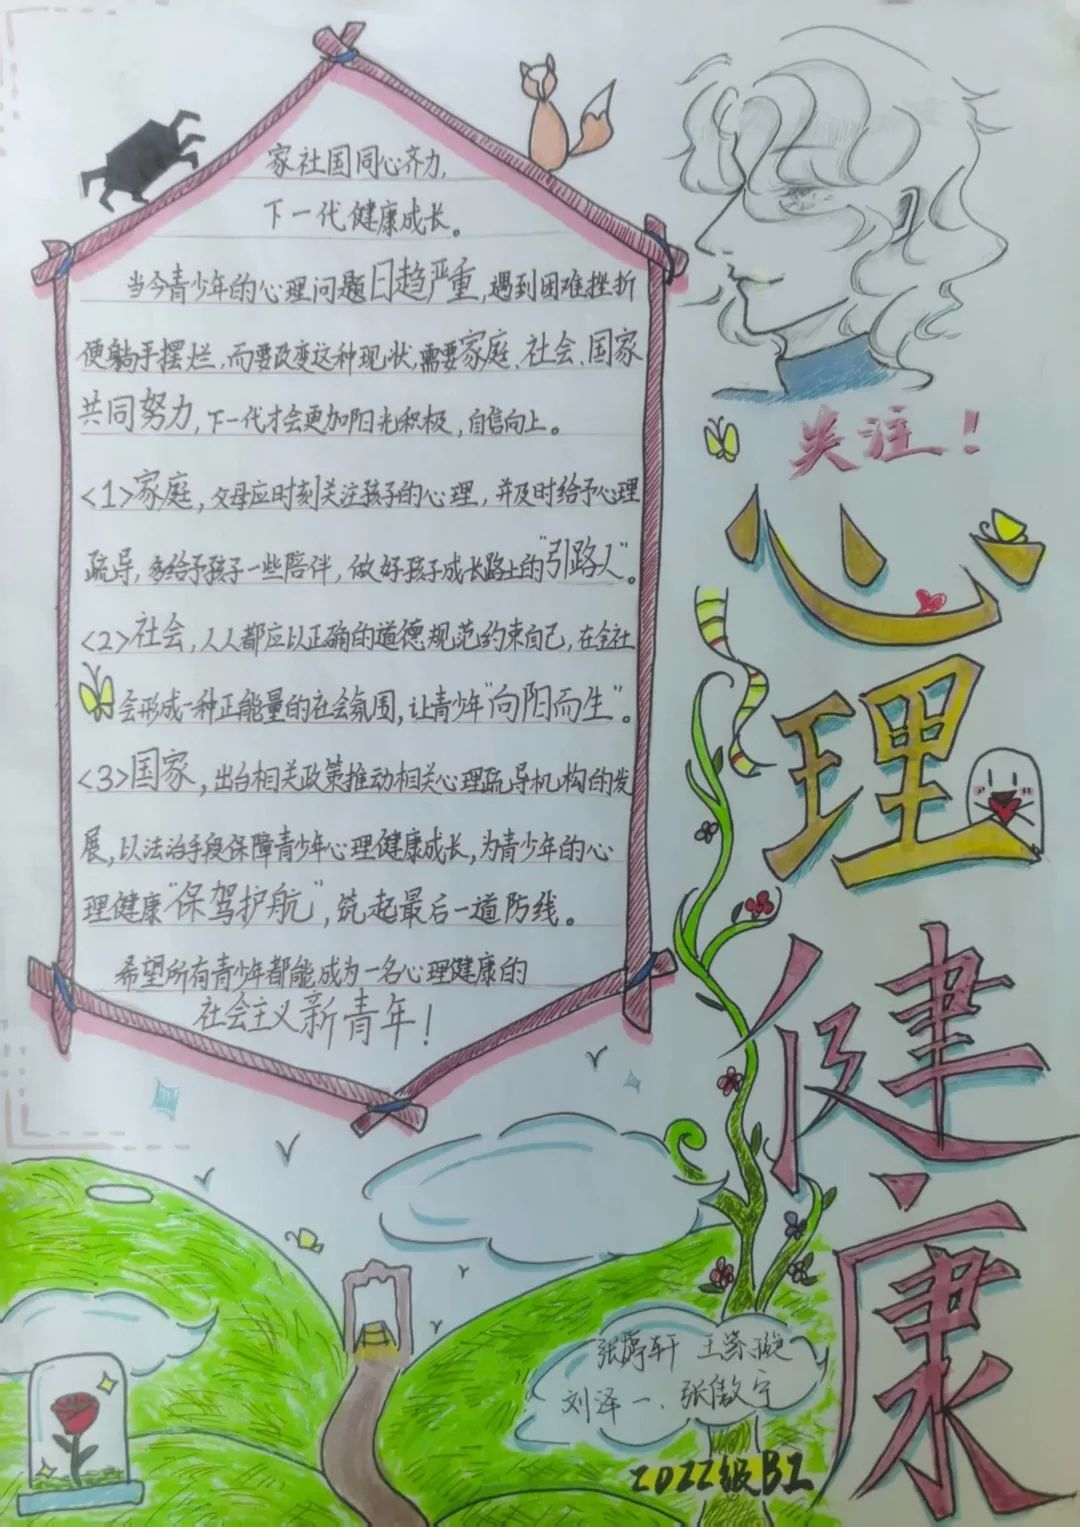 家社国同心齐力,
下一代健康成长。
当今青少年的心理问题日趋严重,遇到困难挫折
便躺手摆烂,而要改变这种现状,需要家庭、社会、国家
共同努力,下一代才会更加阳光积极,自信向上。
<1>家庭,父母应时刻关注孩子的心理,并及时给予心理
疏导,多给予孩子一些陪伴,做好孩子成长路上的“引路人”。
<2>社会,人人都应以正确的道德规范约束自己,在全社
会形成一种正能量的社会氛围,让青少年“向阳而生”。
<3>国家,出台相关政策推动相关心理疏导机构的发
展,以法治手段保障青少年心理健康成长,为青少年的心
理健康“保驾护航”,筑起最后一道防线。
希望所有青少年都能成为一名心理健康的
社会主义新青年!
关注!
心理健康
张 轩 王 璇
刘泽一、张傲宁
2022级B1